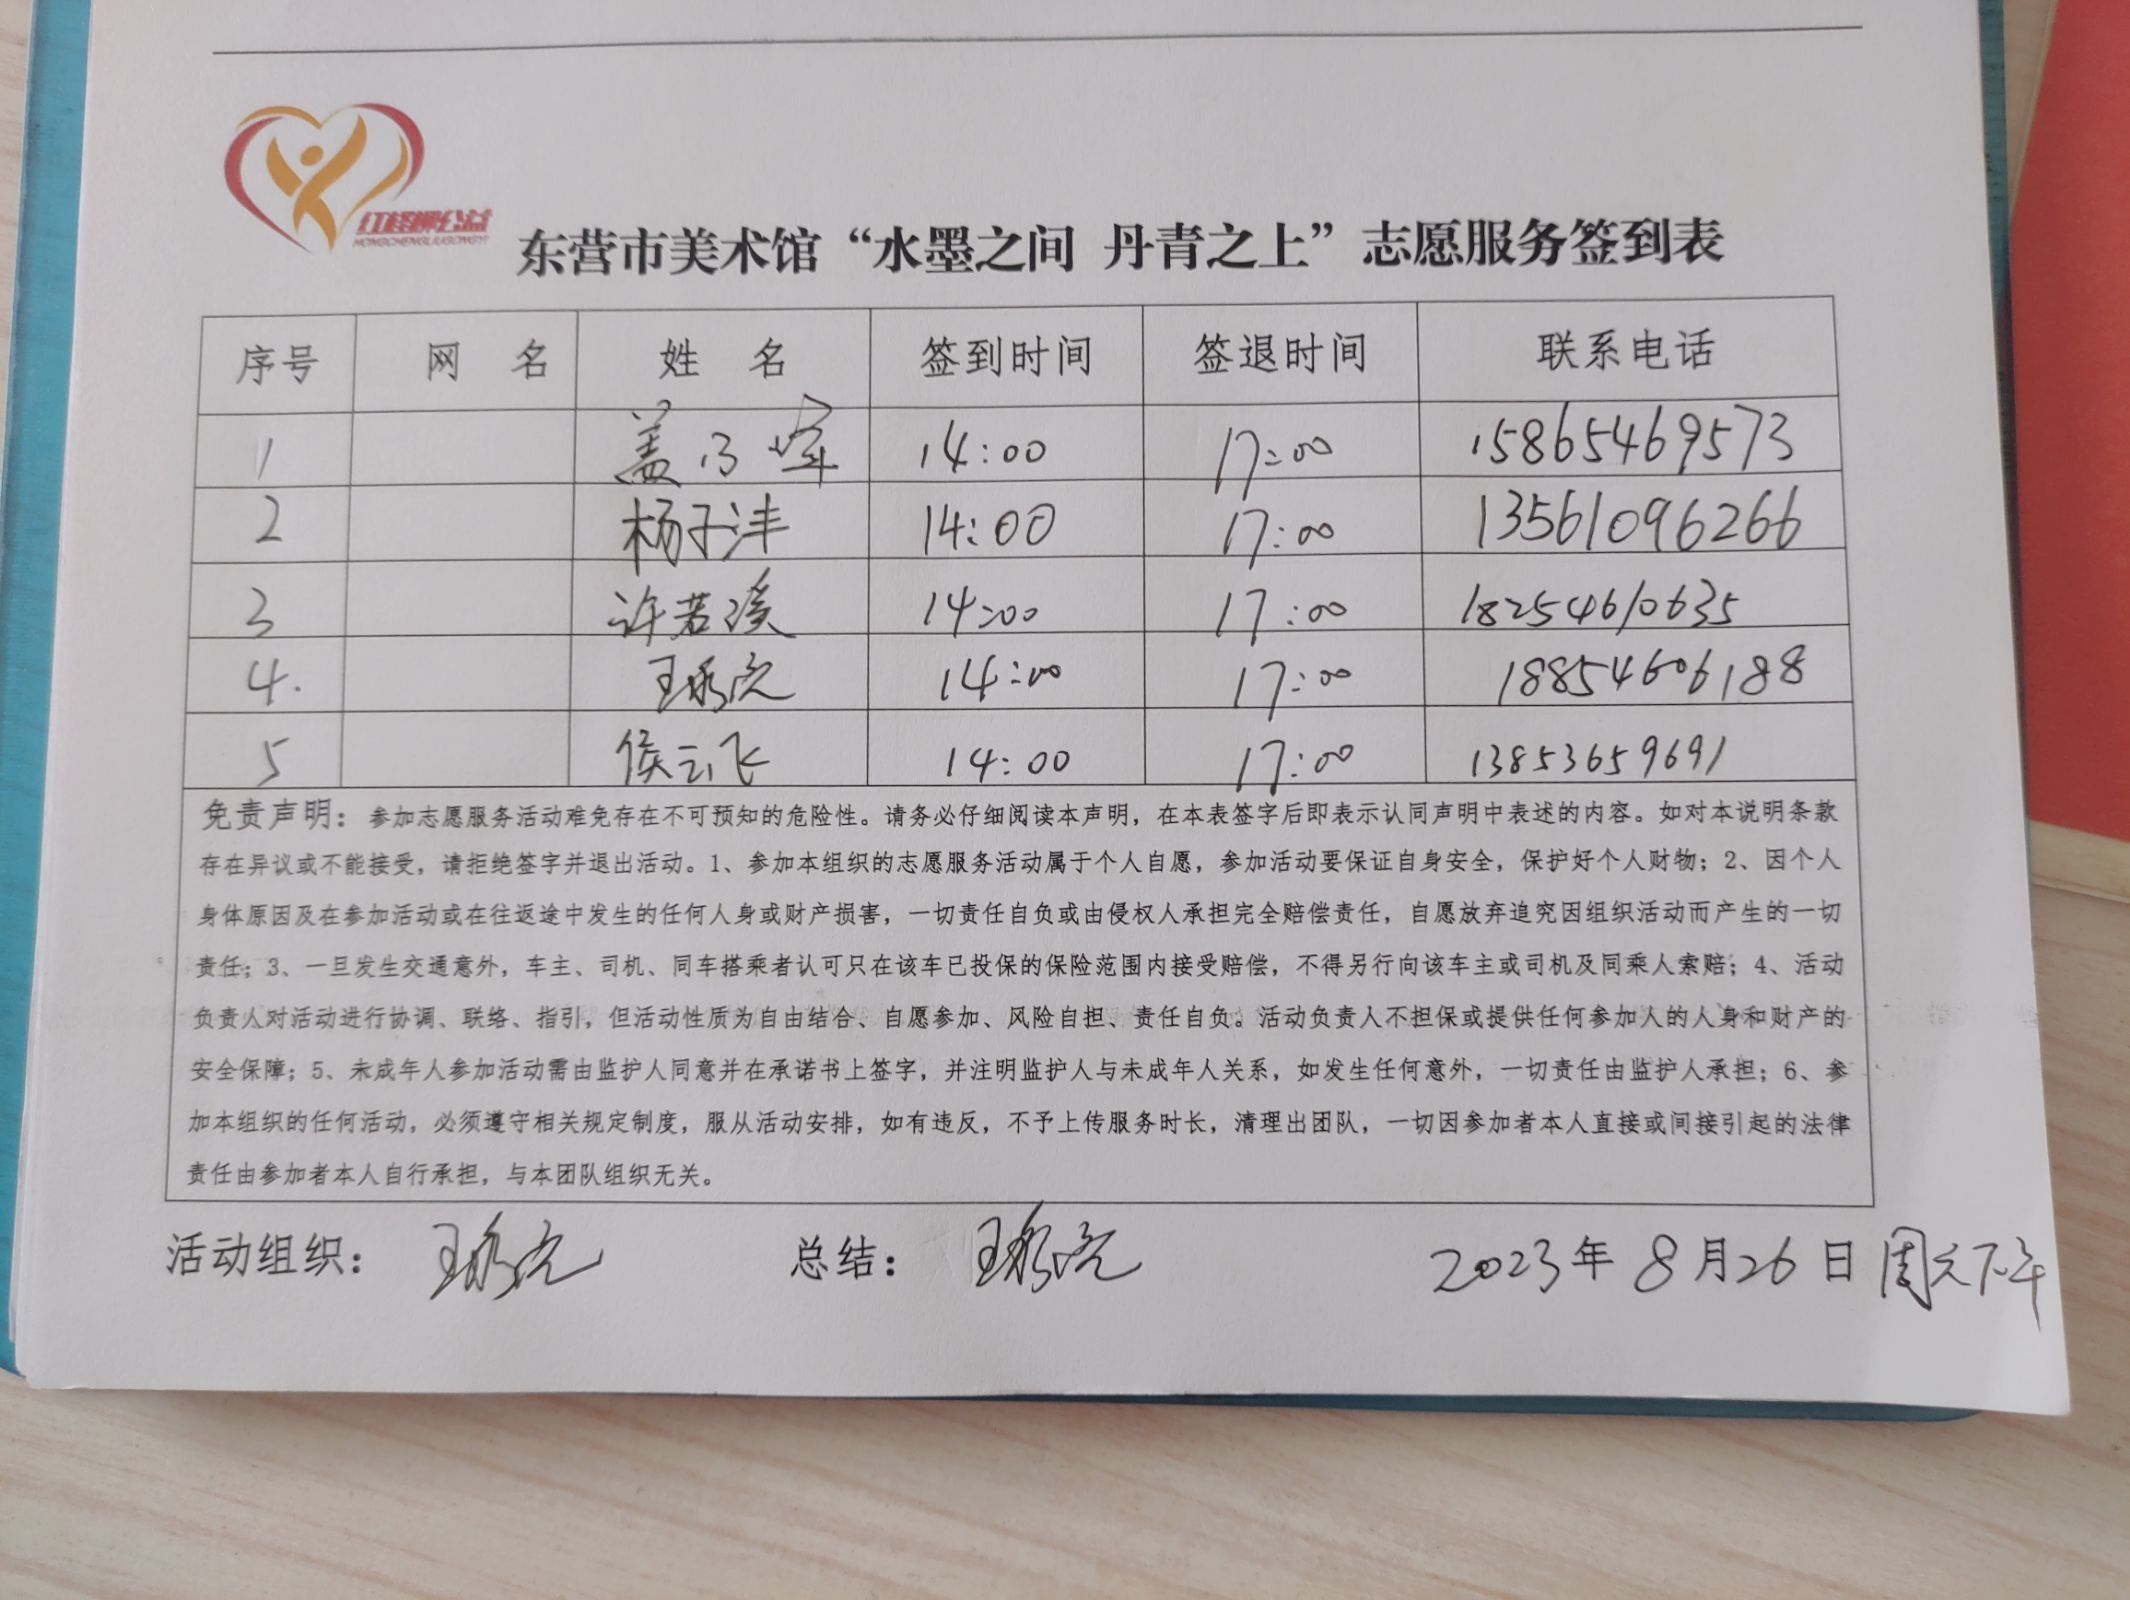 红柽柳公益
HONGCHENGLIUGONGYI
东营市美术馆“水墨之间 丹青之上”志愿服务签到表
序号 网 名 姓 名 签到时间 签退时间 联系电话
1 盖乃 14:00 17:00 15865469573
2 杨子沣 14:00 17:00 13561096266
3 许若溪 14:00 17:00 18254610635
4. 王 14:00 17:00 18854606188
5 侯云飞 14:00 17:00 13853659691
免责声明：参加志愿服务活动难免存在不可预知的危险性。请务必仔细阅读本声明，在本表签字后即表示认同声明中表述的内容。如对本说明条款
存在异议或不能接受，请拒绝签字并退出活动。1、参加本组织的志愿服务活动属于个人自愿，参加活动要保证自身安全，保护好个人财物；2、因个人
身体原因及在参加活动或在往返途中发生的任何人身或财产损害，一切责任自负或由侵权人承担完全赔偿责任，自愿放弃追究因组织活动而产生的一切
责任；3、一旦发生交通意外，车主、司机、同车搭乘者认可只在该车已投保的保险范围内接受赔偿，不得另行向该车主或司机及同乘人索赔；4、活动
负责人对活动进行协调、联络、指引，但活动性质为自由结合、自愿参加、风险自担、责任自负。活动负责人不担保或提供任何参加人的人身和财产的
安全保障；5、未成年人参加活动需由监护人同意并在承诺书上签字，并注明监护人与未成年人关系，如发生任何意外，一切责任由监护人承担；6、参
加本组织的任何活动，必须遵守相关规定制度，服从活动安排，如有违反，不予上传服务时长，清理出团队，一切因参加者本人直接或间接引起的法律
责任由参加者本人自行承担，与本团队组织无关。
活动组织： 王 总结： 王 2023年8月26日 周六下午